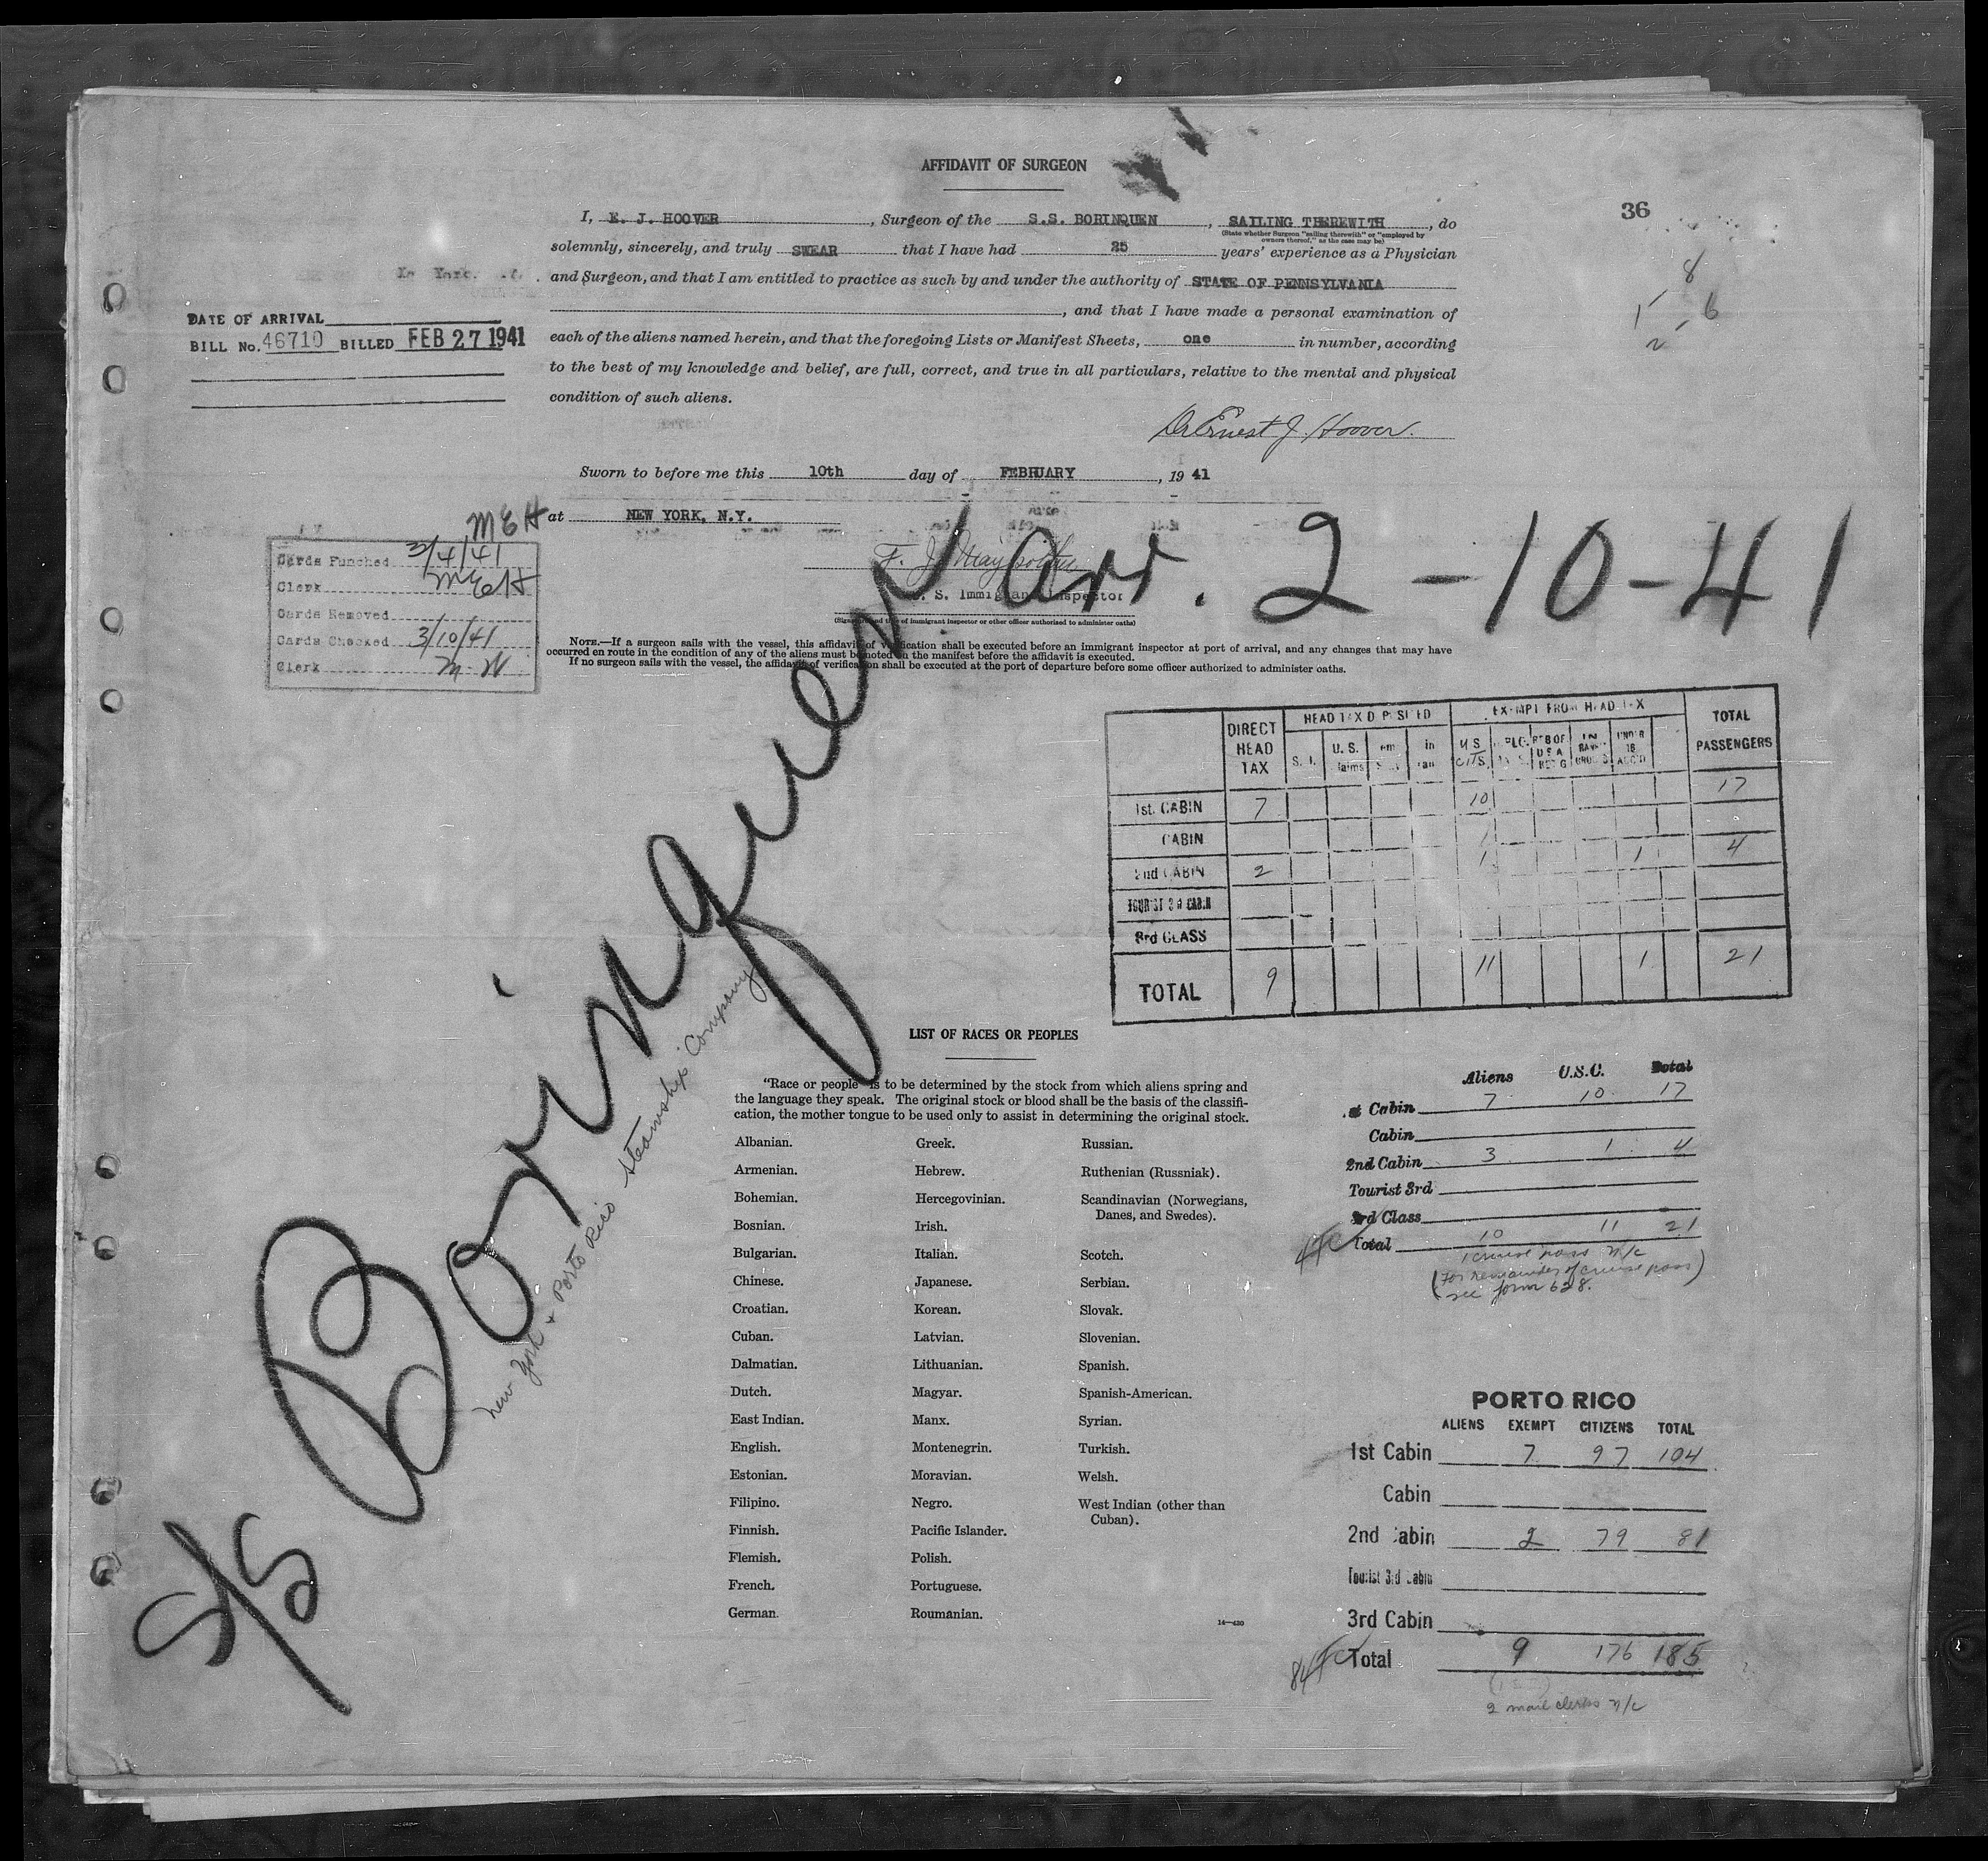 AFFIDAVIT OF SURGEON
36
I, E. J. HOOVER, Surgeon of the S.S. BORINQUEN, SAILING THEREWITH, do
(State whether Surgeon "sailing therewith" or "employed by
owners thereof," as the case may be)
solemnly, sincerely, and truly SWEAR that I have had 25 years' experience as a Physician
and Surgeon, and that I am entitled to practice as such by and under the authority of STATE OF PENNSYLVANIA
, and that I have made a personal examination of
each of the aliens named herein, and that the foregoing Lists or Manifest Sheets, one in number, according
to the best of my knowledge and belief, are full, correct, and true in all particulars, relative to the mental and physical
condition of such aliens.
8
1 6
2
DATE OF ARRIVAL
BILL No. 46710 BILLED FEB 27 1941
Dr Ernest J. Hoover.
Sworn to before me this 10th day of FEBRUARY, 19 41
at NEW YORK, N.Y.
MEH
Cards Punched 3/4/41
Clerk MEH
Cards Removed
Cards Checked 3/10/41
Clerk M. W
F. J.
S. Immigrant Inspector
of immigrant inspector or other officer authorized to administer oaths)
NOTE.—If a surgeon sails with the vessel, this affidavit of verification shall be executed before an immigrant inspector at port of arrival, and any changes that may have
occurred en route in the condition of any of the aliens must be noted on the manifest before the affidavit is executed.
If no surgeon sails with the vessel, the affidavit of verification shall be executed at the port of departure before some officer authorized to administer oaths.
S/S Borinquen arr. 2-10-41
New York & Porto Rico Steamship Company
DIRECT HEAD TAX HEAD TAX DEPOSITED EXEMPT FROM HEAD TAX TOTAL PASSENGERS
U. S. U S CITS. UNDER 16
1st. CABIN 7 10 17
CABIN 1
2nd CABIN 2 1 1 4
TOURIST 3d CABIN
3rd CLASS
TOTAL 9 11 1 21
LIST OF RACES OR PEOPLES
"Race or people" is to be determined by the stock from which aliens spring and
the language they speak. The original stock or blood shall be the basis of the classifi-
cation, the mother tongue to be used only to assist in determining the original stock.
Albanian.
Armenian.
Bohemian.
Bosnian.
Bulgarian.
Chinese.
Croatian.
Cuban.
Dalmatian.
Dutch.
East Indian.
English.
Estonian.
Filipino.
Finnish.
Flemish.
French.
German.
Greek.
Hebrew.
Hercegovinian.
Irish.
Italian.
Japanese.
Korean.
Latvian.
Lithuanian.
Magyar.
Manx.
Montenegrin.
Moravian.
Negro.
Pacific Islander.
Polish.
Portuguese.
Roumanian.
Russian.
Ruthenian (Russniak).
Scandinavian (Norwegians,
Danes, and Swedes).
Scotch.
Serbian.
Slovak.
Slovenian.
Spanish.
Spanish-American.
Syrian.
Turkish.
Welsh.
West Indian (other than
Cuban).
14—430
Aliens U.S.C. Total
st Cabin 7 10 17
Cabin
2nd Cabin 3 1 4
Tourist 3rd
3rd Class
Total 10 11 21
1 cruise pass n/c
(For remainder of cruise pass)
see form 628.
PORTO RICO
ALIENS EXEMPT CITIZENS TOTAL
1st Cabin 7 97 104
Cabin
2nd Cabin 2 79 81
Tourist 3rd Cabin
3rd Cabin
Total 9 176 185
2 mail clerks n/c